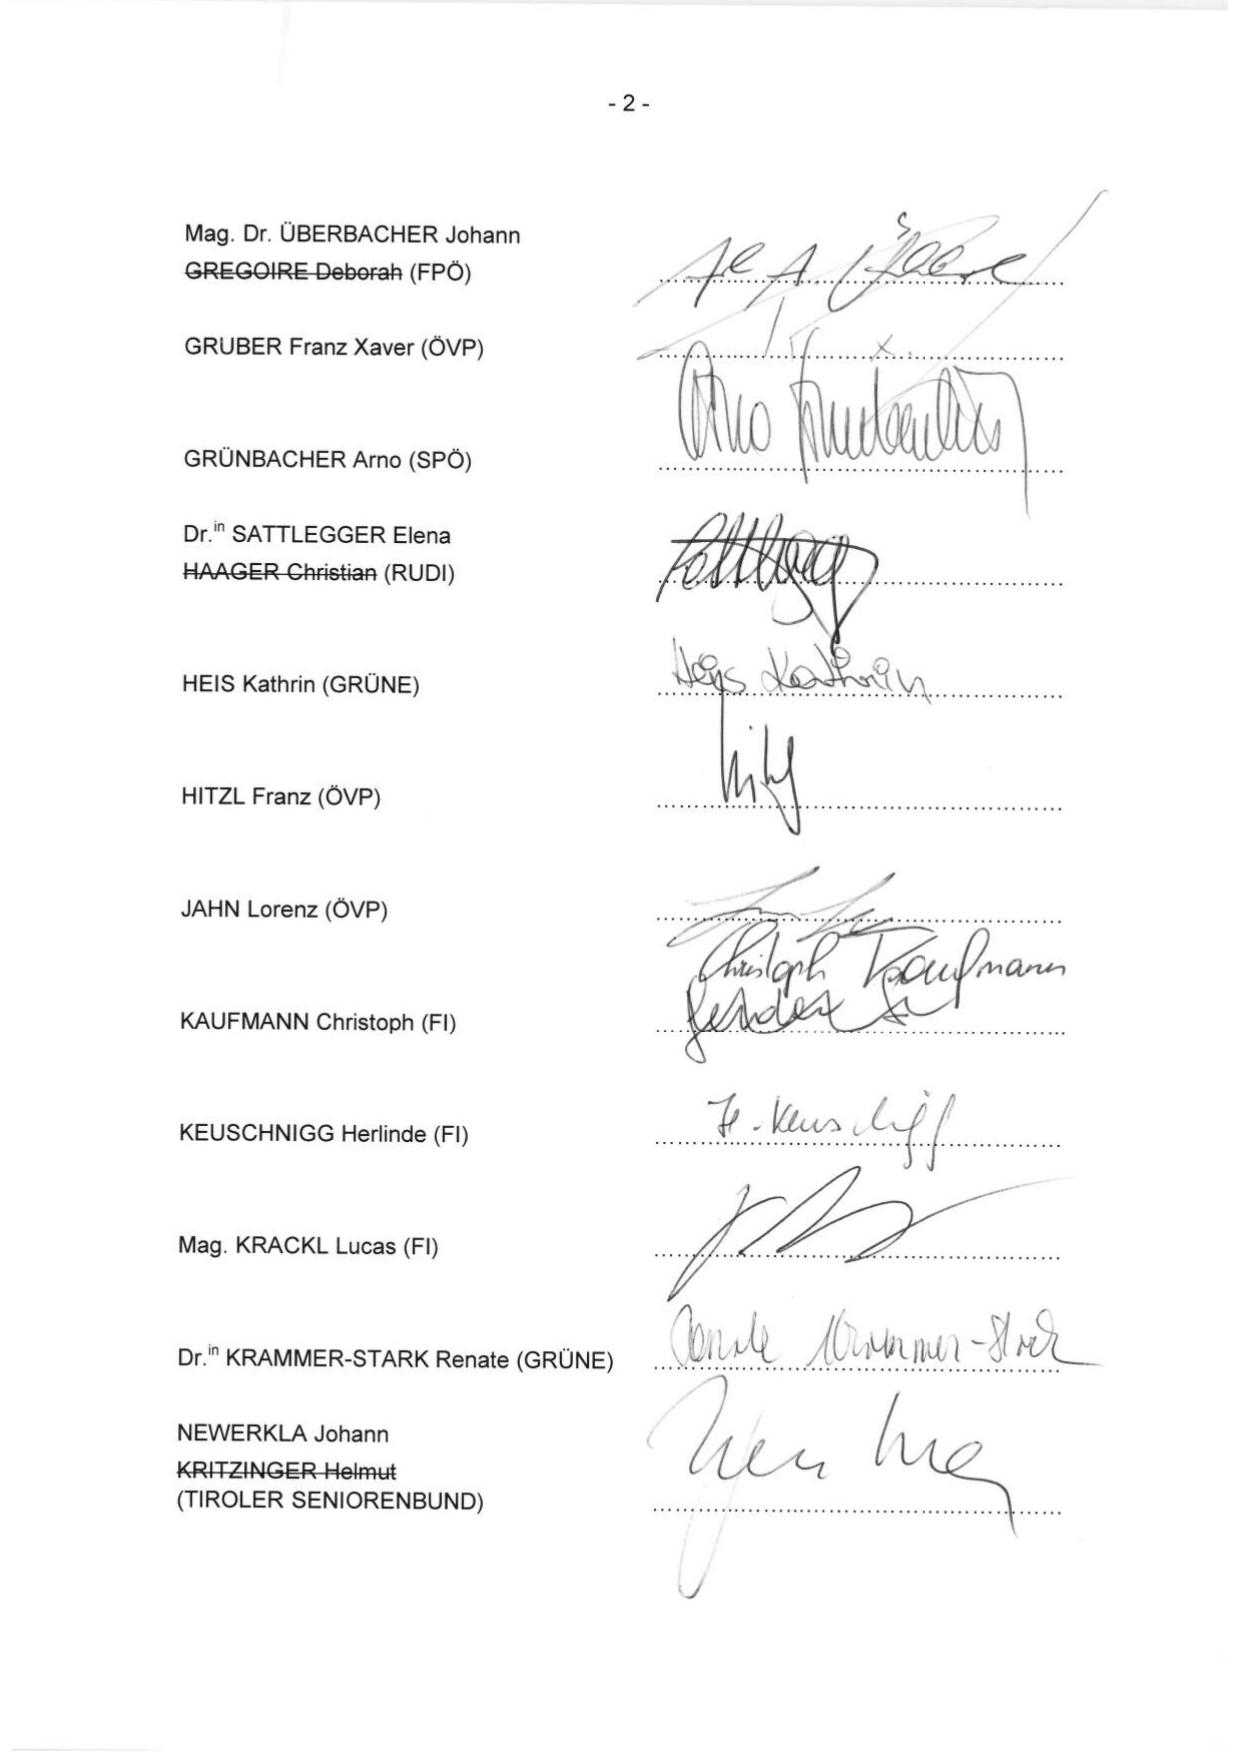 - 2 -
Mag. Dr. ÜBERBACHER Johann
GREGOIRE Deborah (FPÖ)
GRUBER Franz Xaver (ÖVP)
GRÜNBACHER Arno (SPÖ)
Dr.in SATTLEGGER Elena
HAAGER Christian (RUDI)
HEIS Kathrin (GRÜNE)
Heis Kathrin
HITZL Franz (ÖVP)
JAHN Lorenz (ÖVP)
Christoph Kaufmann
KAUFMANN Christoph (FI)
H. Keuschnigg
KEUSCHNIGG Herlinde (FI)
Mag. KRACKL Lucas (FI)
Renate Krammer-Stark
Dr.in KRAMMER-STARK Renate (GRÜNE)
NEWERKLA Johann
KRITZINGER Helmut
(TIROLER SENIORENBUND)